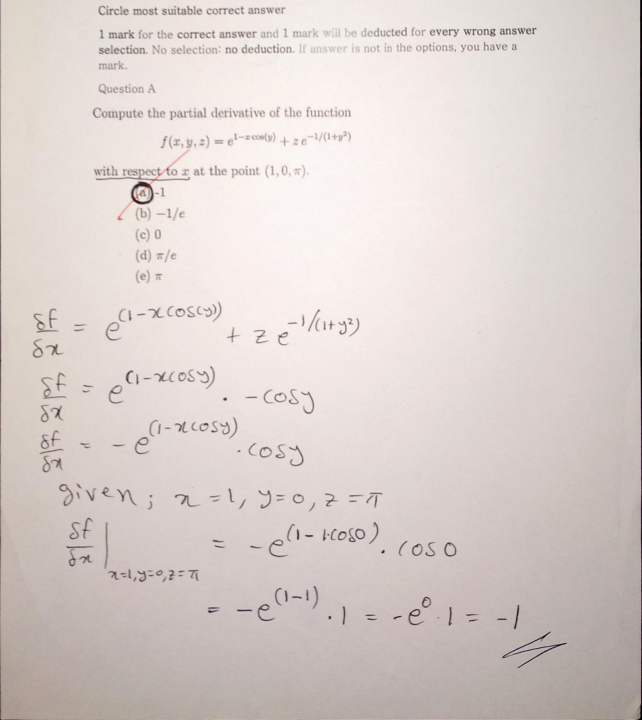 Circle most suitable correct answer
1 mark for the correct answer and 1 mark will be deducted for every wrong answer
selection. No selection: no deduction. If answer is not in the options, you have a
mark.
Question A
Compute the partial derivative of the function
f(x, y, z) = e^{1−x cos(y)} + z e^{−1/(1+y²)}
with respect to x at the point (1, 0, π).
(a) -1
(b) −1/e
(c) 0
(d) π/e
(e) π
δf/δx = e^{(1-x cos(y))} + z e^{-1/(1+y²)}
δf/δx = e^{(1-x cosy)} . - cosy
δf/δx = - e^{(1-x cosy)} . cosy
given; x = 1, y = 0, z = π
δf/δx |_{x=1, y=0, z=π} = -e^{(1-1·cos0)} . cos0
= -e^{(1-1)} . 1 = -e^0 . 1 = -1